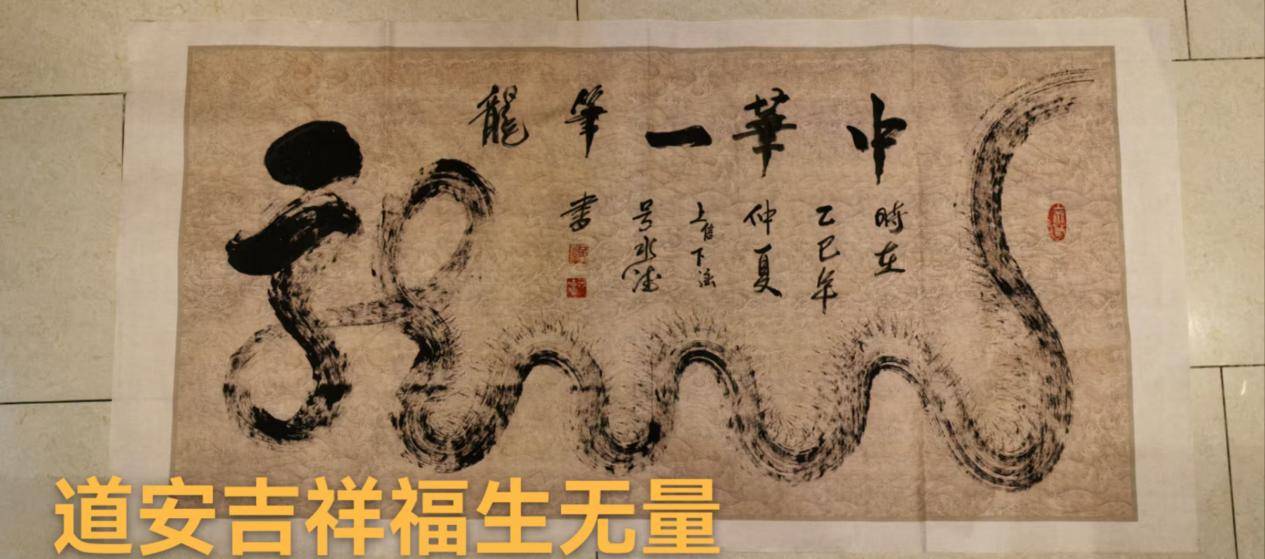 中華一筆龍
時在
乙巳年
仲夏
上下
号
書
道安吉祥福生无量